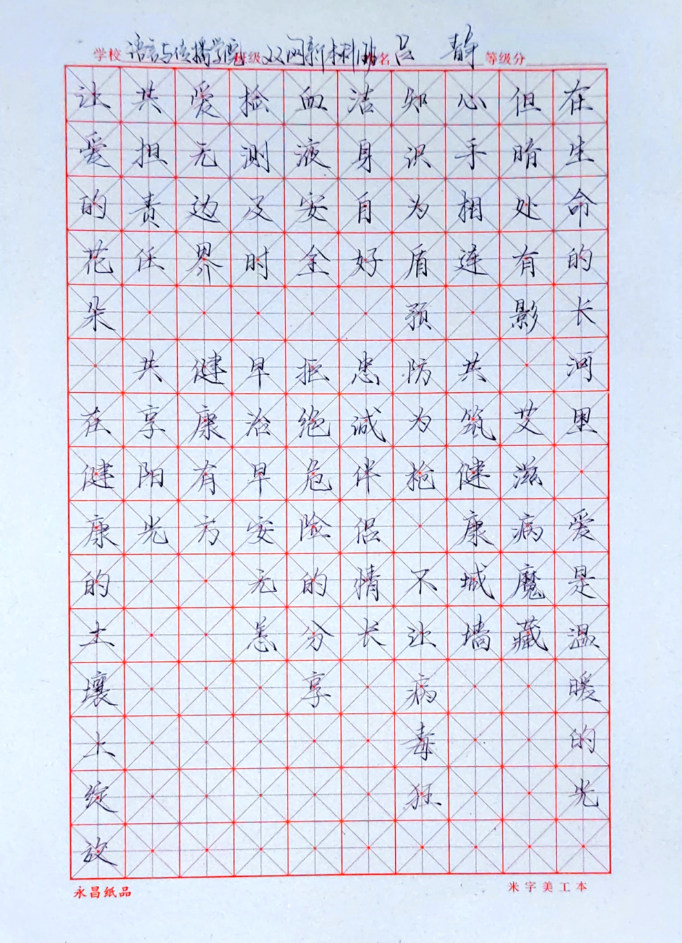 学校 语言与传播学院 班级 网新本科 姓名 吕静 等级分
在生命的长河里 爱是温暖的光
但暗处有影 艾滋病魔藏
心手相连 共筑健康城墙
知识为盾预防为枪 不让病毒狂
洁身自好 忠诚伴侣情长
血液安全 拒绝危险的分享
检测及时 早治早安无恙
爱无边界 健康有方
共担责任 共享阳光
让爱的花朵 在健康的土壤上绽放
永昌纸品
米字美工本